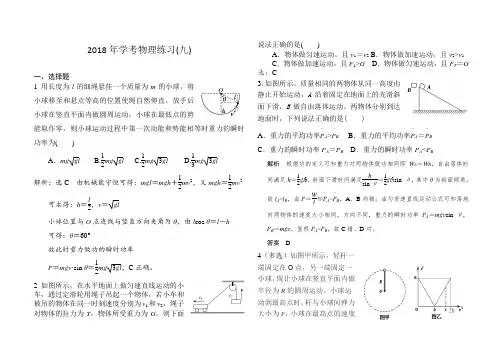 2018年学考物理练习(九)
一、选择题
1 用长度为l的细绳悬挂一个质量为m的小球，将
小球移至和悬点等高的位置使绳自然伸直．放手后
小球在竖直平面内做圆周运动，小球在最低点的势
能取作零，则小球运动过程中第一次动能和势能相等时重力的瞬时
功率为( )
A．mg√gl B.½mg√gl C.½mg√3gl D.⅓mg√3gl
解析：选C 由机械能守恒可得：mgl＝mgh＋½mv²，又mgh＝½mv²
可求得：h＝l/2，v＝√gl
小球位置与O点连线与竖直方向夹角为θ，由lcos θ＝l－h
可得：θ＝60°
故此时重力做功的瞬时功率
P＝mgv·sin θ＝½mg√3gl，C正确。
2 如图所示，在水平地面上做匀速直线运动的小
车，通过定滑轮用绳子吊起一个物体，若小车和
被吊的物体在同一时刻速度分别为v₁和v₂，绳子
对物体的拉力为T，物体所受重力为G，则下面
说法正确的是( )
A．物体做匀速运动，且v₁＝v₂ B．物体做加速运动，且v₂>v₁
C．物体做加速运动，且F₁>G D．物体做匀速运动，且F₁＝G
选：C
3.如图所示，质量相同的两物体从同一高度由
静止开始运动，A沿着固定在地面上的光滑斜
面下滑，B做自由落体运动。两物体分别到达
地面时，下列说法正确的是( )
B A
A．重力的平均功率P̄A>P̄B B．重力的平均功率P̄A＝P̄B
C．重力的瞬时功率PA＝PB D．重力的瞬时功率PA<PB
解析 根据功的定义可知重力对两物体做功相同即WA＝WB，自由落体时
间满足h＝½gtB²，斜面下滑时间满足h/sin θ＝½gtA²sin θ，其中θ为斜面倾角，
故tA>tB，由P＝W/t知P̄A<P̄B，A、B均错；由匀变速直线运动公式可知落地
时两物体的速度大小相同，方向不同，重力的瞬时功率PA＝mgvsin θ，
PB＝mgv，显然PA<PB，故C错，D对。
答案 D
4（多选）如图甲所示，轻杆一
端固定在O点，另一端固定一
小球，现让小球在竖直平面内做
半径为R的圆周运动。小球运
动到最高点时，杆与小球间弹力
大小为F，小球在最高点的速度
图甲
图乙